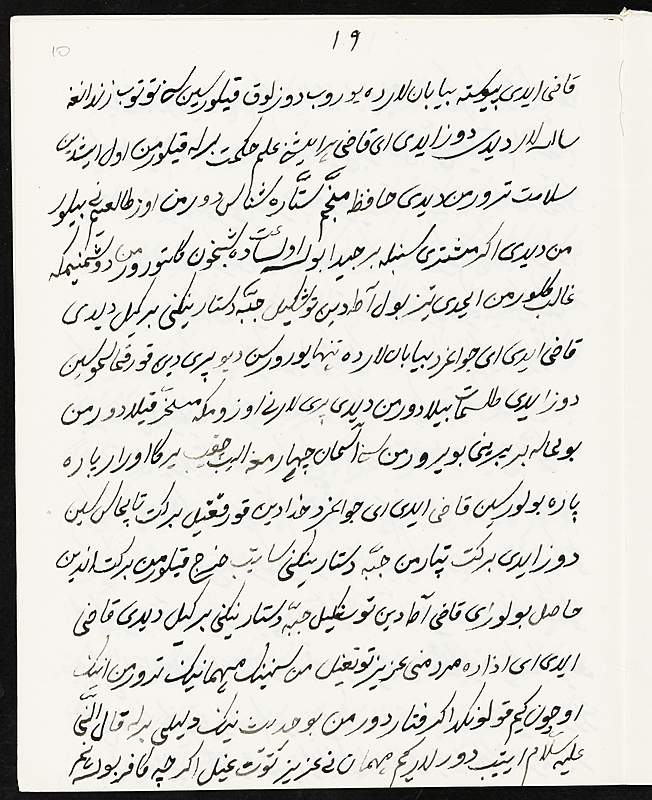 ۱۹
10
قاضی ایدی پیوسته بیابان لارده یوروب دوزلوق قیلورسین سنی توتوب زندانغه
سالسه لار دیدی دوز ایدی ای قاضی هر ایشنی علم حکمت برله قیلورمن اول ایشدین
سلامت تورورمن دیدی حافظ منجم ستاره شناس دورمن اوز طالعیم نی بیلور
من دیدی اکر مشتری سنبله برجیدا بولسه اول ساعت ده شبخون کلتورورمن دوشمنیمکه
غالب کلورمن ایدی تیز بول آطدین توشکیل جبّه دستارینکنی برکیل دیدی
قاضی ایدی ای جوانمرد بیابان لارده تنها یورورسن دیو پری دین قورقمالمو سین
دوز ایدی طلسمات بیلادورمن دیدی پری لارنی اوزومکه مسخّر قیلادورمن
بولماسه بر بیرینی بویرورمن آسمان چهارمغه الیب چقیب یرکا اورار پاره
پاره بولورسین قاضی ایدی ای جوانمرد خدادین قورققیل برکت تاپماسسین
دوز ایدی برکت تپارمن جبّه دستارینکنی ساتیب خرج قیلورمن برکت اندین
حاصل بولور ای قاضی آطدین توشکیل جبّه دستارینکنی برکیل دیدی قاضی
ایدی ای آزاده مرد منی عزیز توتغیل من سنینک مهمانینک تورورمن انینک
اوچون کیم قولونکدا کرفتار دورمن بو حدیث نینک دلیلی برله قال النّبی
علیه السّلام ایتیب دورلار کیم مهمان نی عزیز توتغیل اکرچه کافر بولسه هم